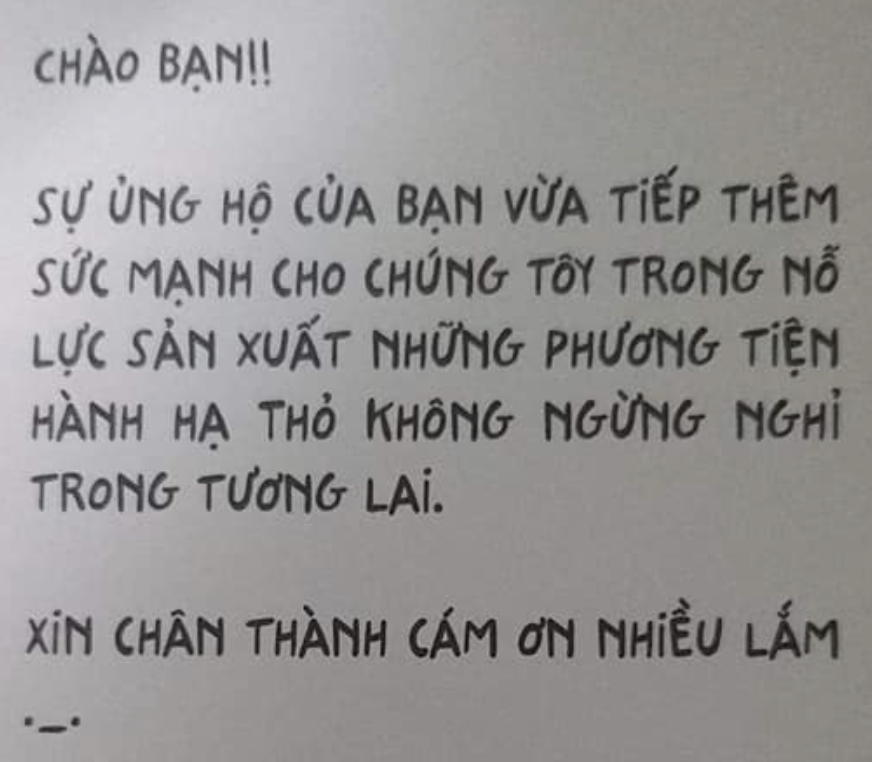 CHÀO BẠN!!
SỰ ỦNG HỘ CỦA BẠN VỪA TIẾP THÊM
SỨC MẠNH CHO CHÚNG TÔY TRONG NỖ
LỰC SẢN XUẤT NHỮNG PHƯƠNG TIỆN
HÀNH HẠ THỎ KHÔNG NGỪNG NGHỈ
TRONG TƯƠNG LAI.
XIN CHÂN THÀNH CÁM ƠN NHIỀU LẮM
._.